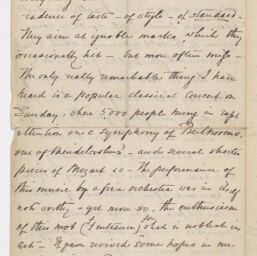 cadence of taste - of style - of standard -
They aim at ignoble marks which they
occasionally hit - but more often miss -
The only really remarkable thing I have
heard is a popular classical concert on
Sunday, where 5,000 people hung in rapt
attention on a Symphony of Beethoven's,
one of Mendelssohn's - and several shorter
pieces of Mozart &c - The performance of
this music by a fine orchestra was in itself
noteworthy - yet more so, the enthusiasm
of this mob for what is noblest in
art - It even revived some hopes in me